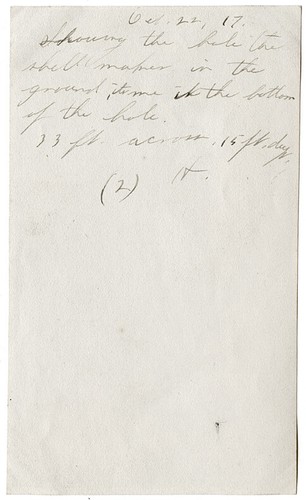 Oct. 22, 17.
Showing the hole the
shell makes in the
ground, to me at the bottom
of the hole.
33 ft. across, 15 ft. deep.
(2) H.